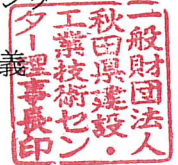 一般財団法人
秋田県建設・
工業技術セン
ター理事長印
義